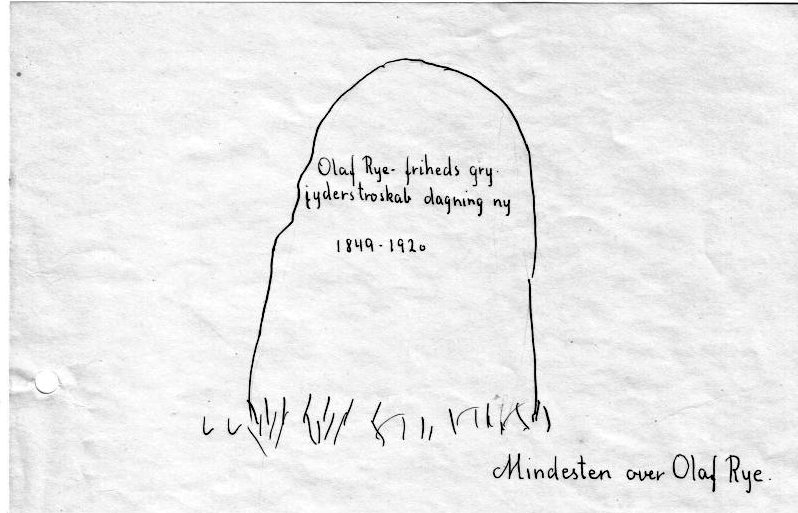 Olaf Rye - friheds gry.
jyderstroskab dagning ny
1849 - 1920
Mindesten over Olaf Rye.